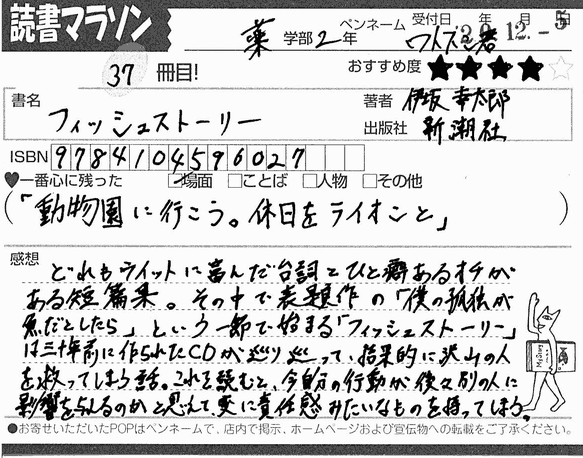 読書マラソン
薬 学部 2 年
ペンネーム
受付日 年 12 月 -5 日
37 冊目!
おすすめ度 ★★★★☆
書名
フィッシュストーリー
著者 伊坂 幸太郎
出版社 新潮社
ISBN 9784104596027
♥一番心に残った ☑場面 □ことば □人物 □その他
(「動物園に行こう。休日をライオンと」)
感想
どれもウイットに富んだ台詞とひと癖あるオチが
ある短篇集。その中で表題作の「僕の孤独が
魚だとしたら」という一節で始まる「フィッシュストーリー」
は三十年前に作られたCDが巡り巡って、結果的に沢山の人
を救ってしまう話。これを読むと、今自分の行動が後々別の人に
影響を与えるのかと思えて、変に責任感みたいなものを持ってしまう。
●お寄せいただいたPOPはペンネームで、店内で掲示、ホームページおよび宣伝物への転載をご了承ください。